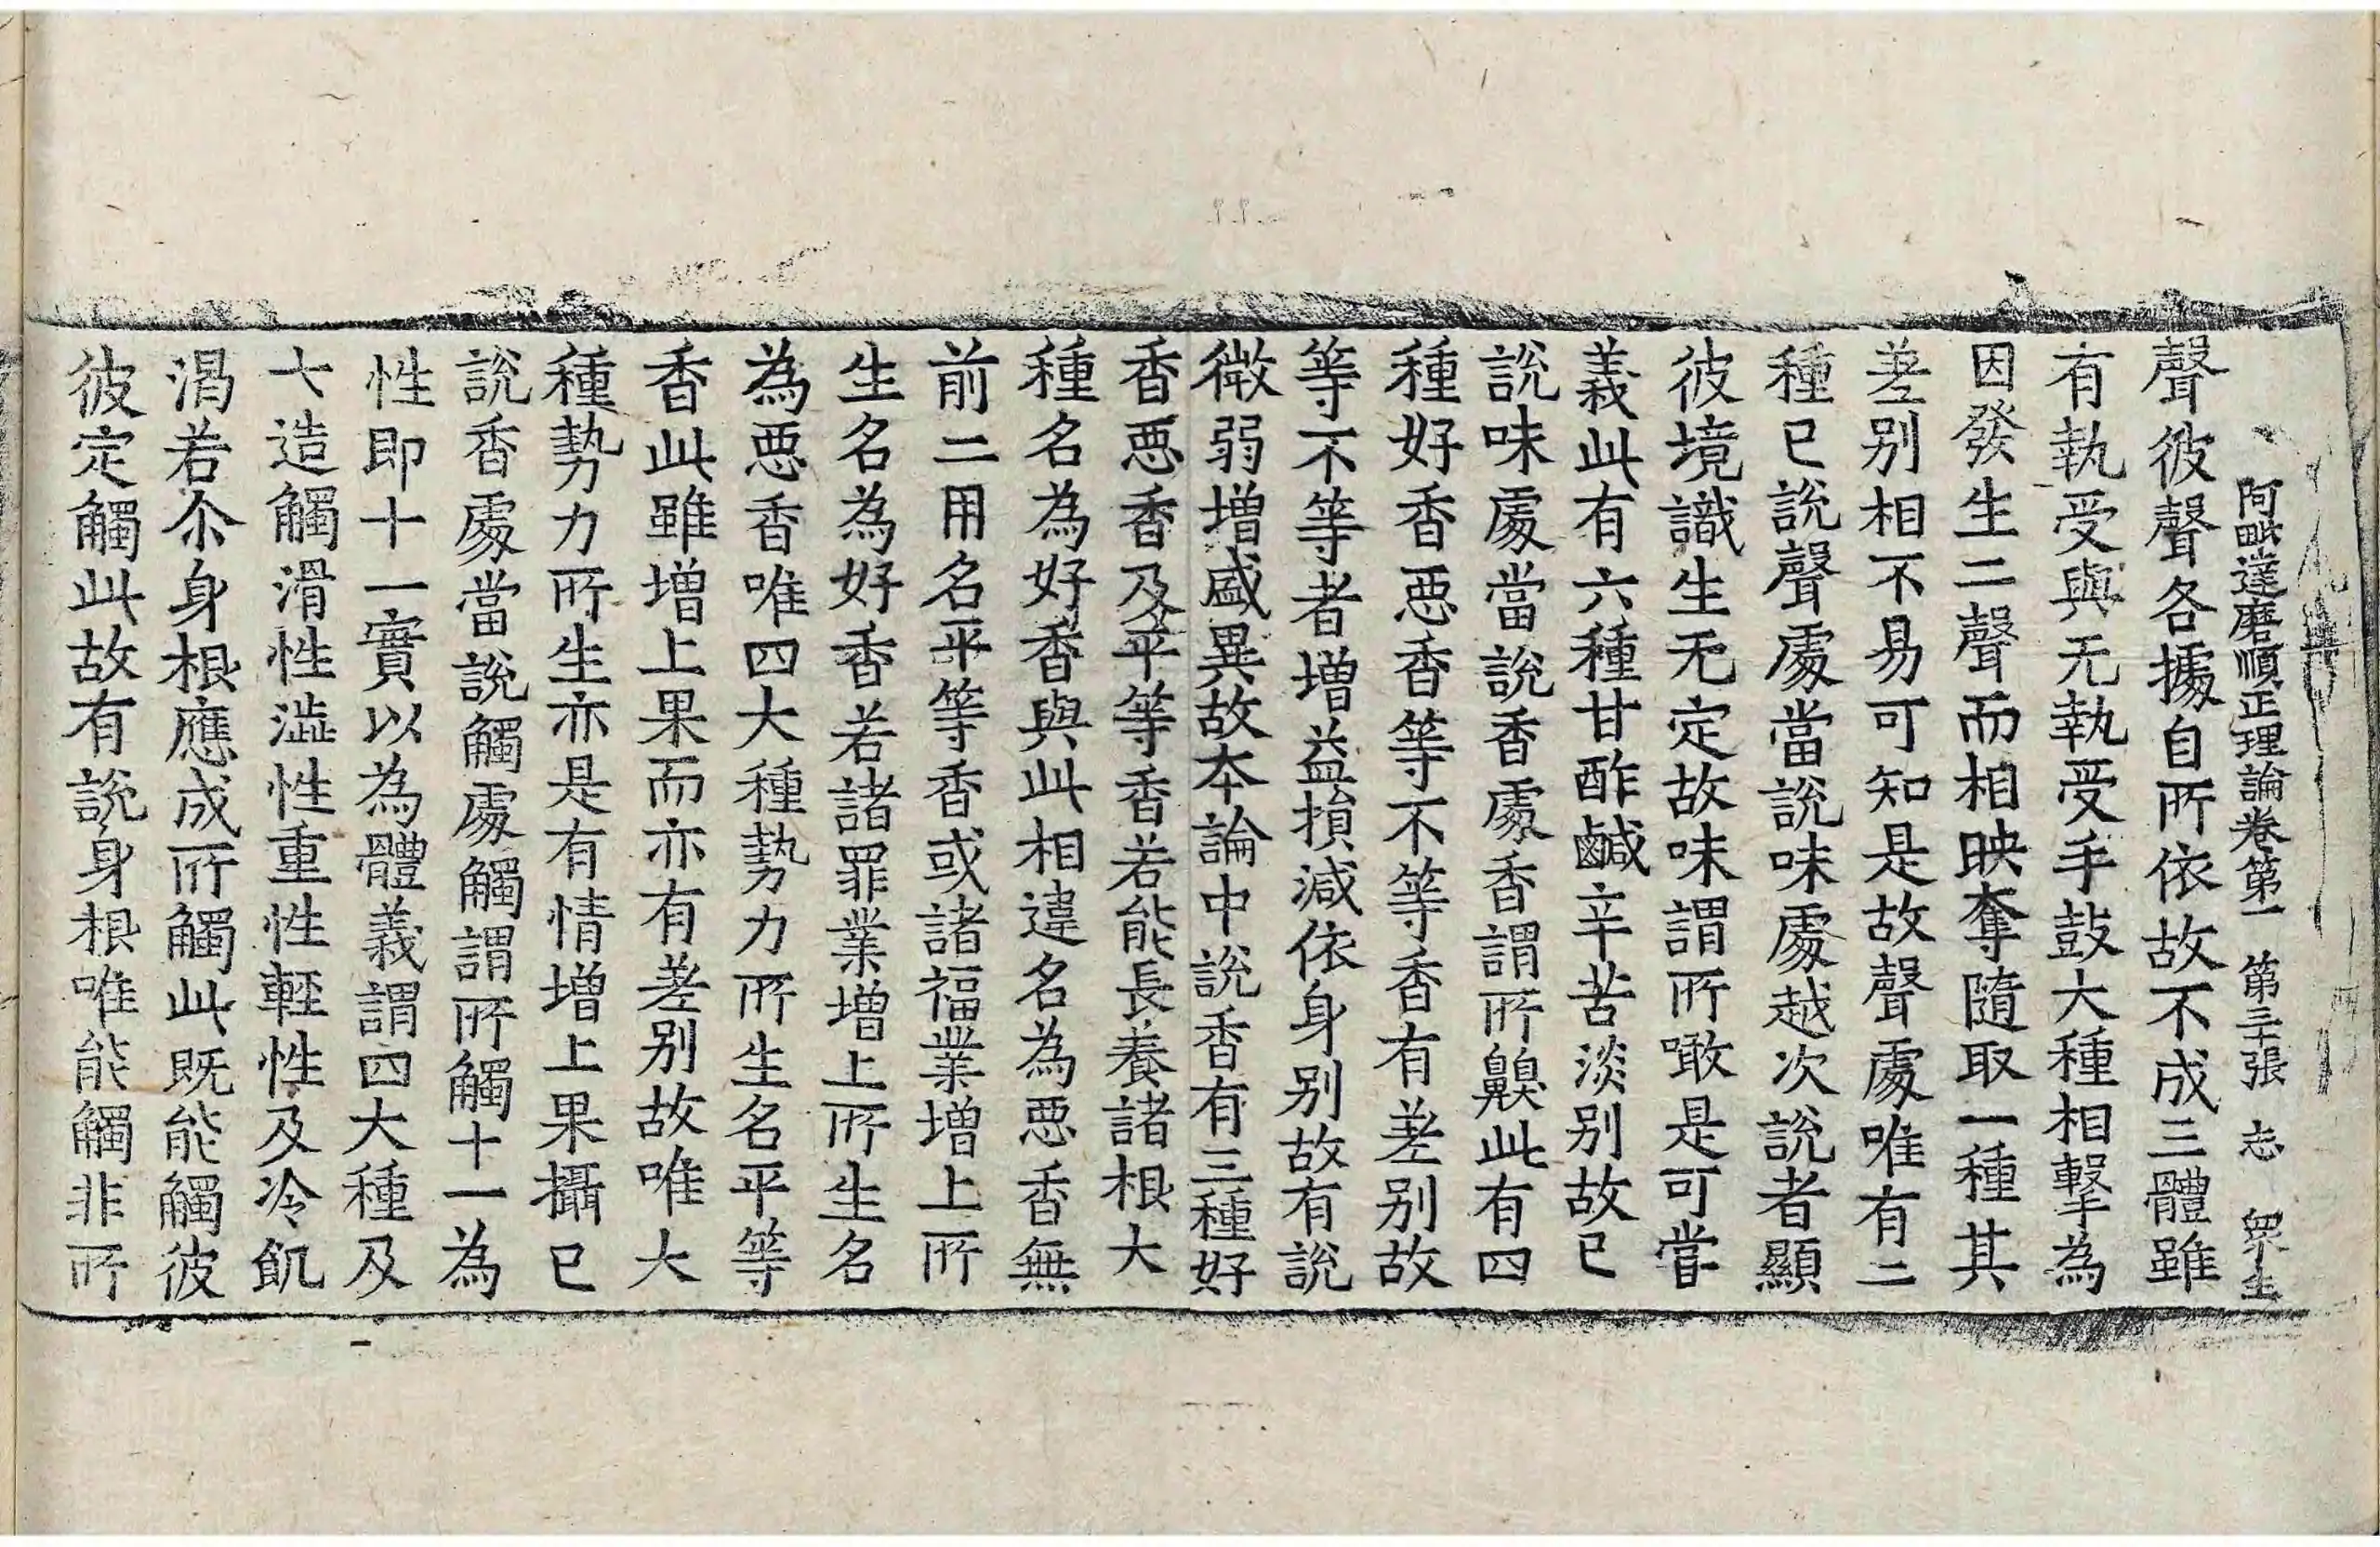 阿毗達磨順正理論卷第一　第三十張　志　衆生
聲彼聲各據自所依故不成三體雖
有執受與无執受手鼓大種相擊為
因發生二聲而相映奪隨取一種其
差别相不易可知是故聲處唯有二
種已說聲處當說味處越次說者顯
彼境識生无定故味謂所噉是可甞
義此有六種甘酢鹹辛苦淡别故已
說味處當說香處香謂所齅此有四
種好香惡香等不等香有差别故
等不等者增益損減依身别故有說
微弱增盛異故本論中說香有三種好
香惡香及平等香若能長養諸根大
種名為好香與此相違名為惡香無
前二用名平等香或諸福業增上所
生名為好香若諸罪業增上所生名
為惡香唯四大種勢力所生名平等
香此雖增上果而亦有差别故唯大
種勢力所生亦是有情增上果攝已
說香處當說觸處觸謂所觸十一為
性即十一實以為體義謂四大種及
七造觸滑性澁性重性輕性及冷飢
渴若尒身根應成所觸此既能觸彼
彼定觸此故有說身根唯能觸非所